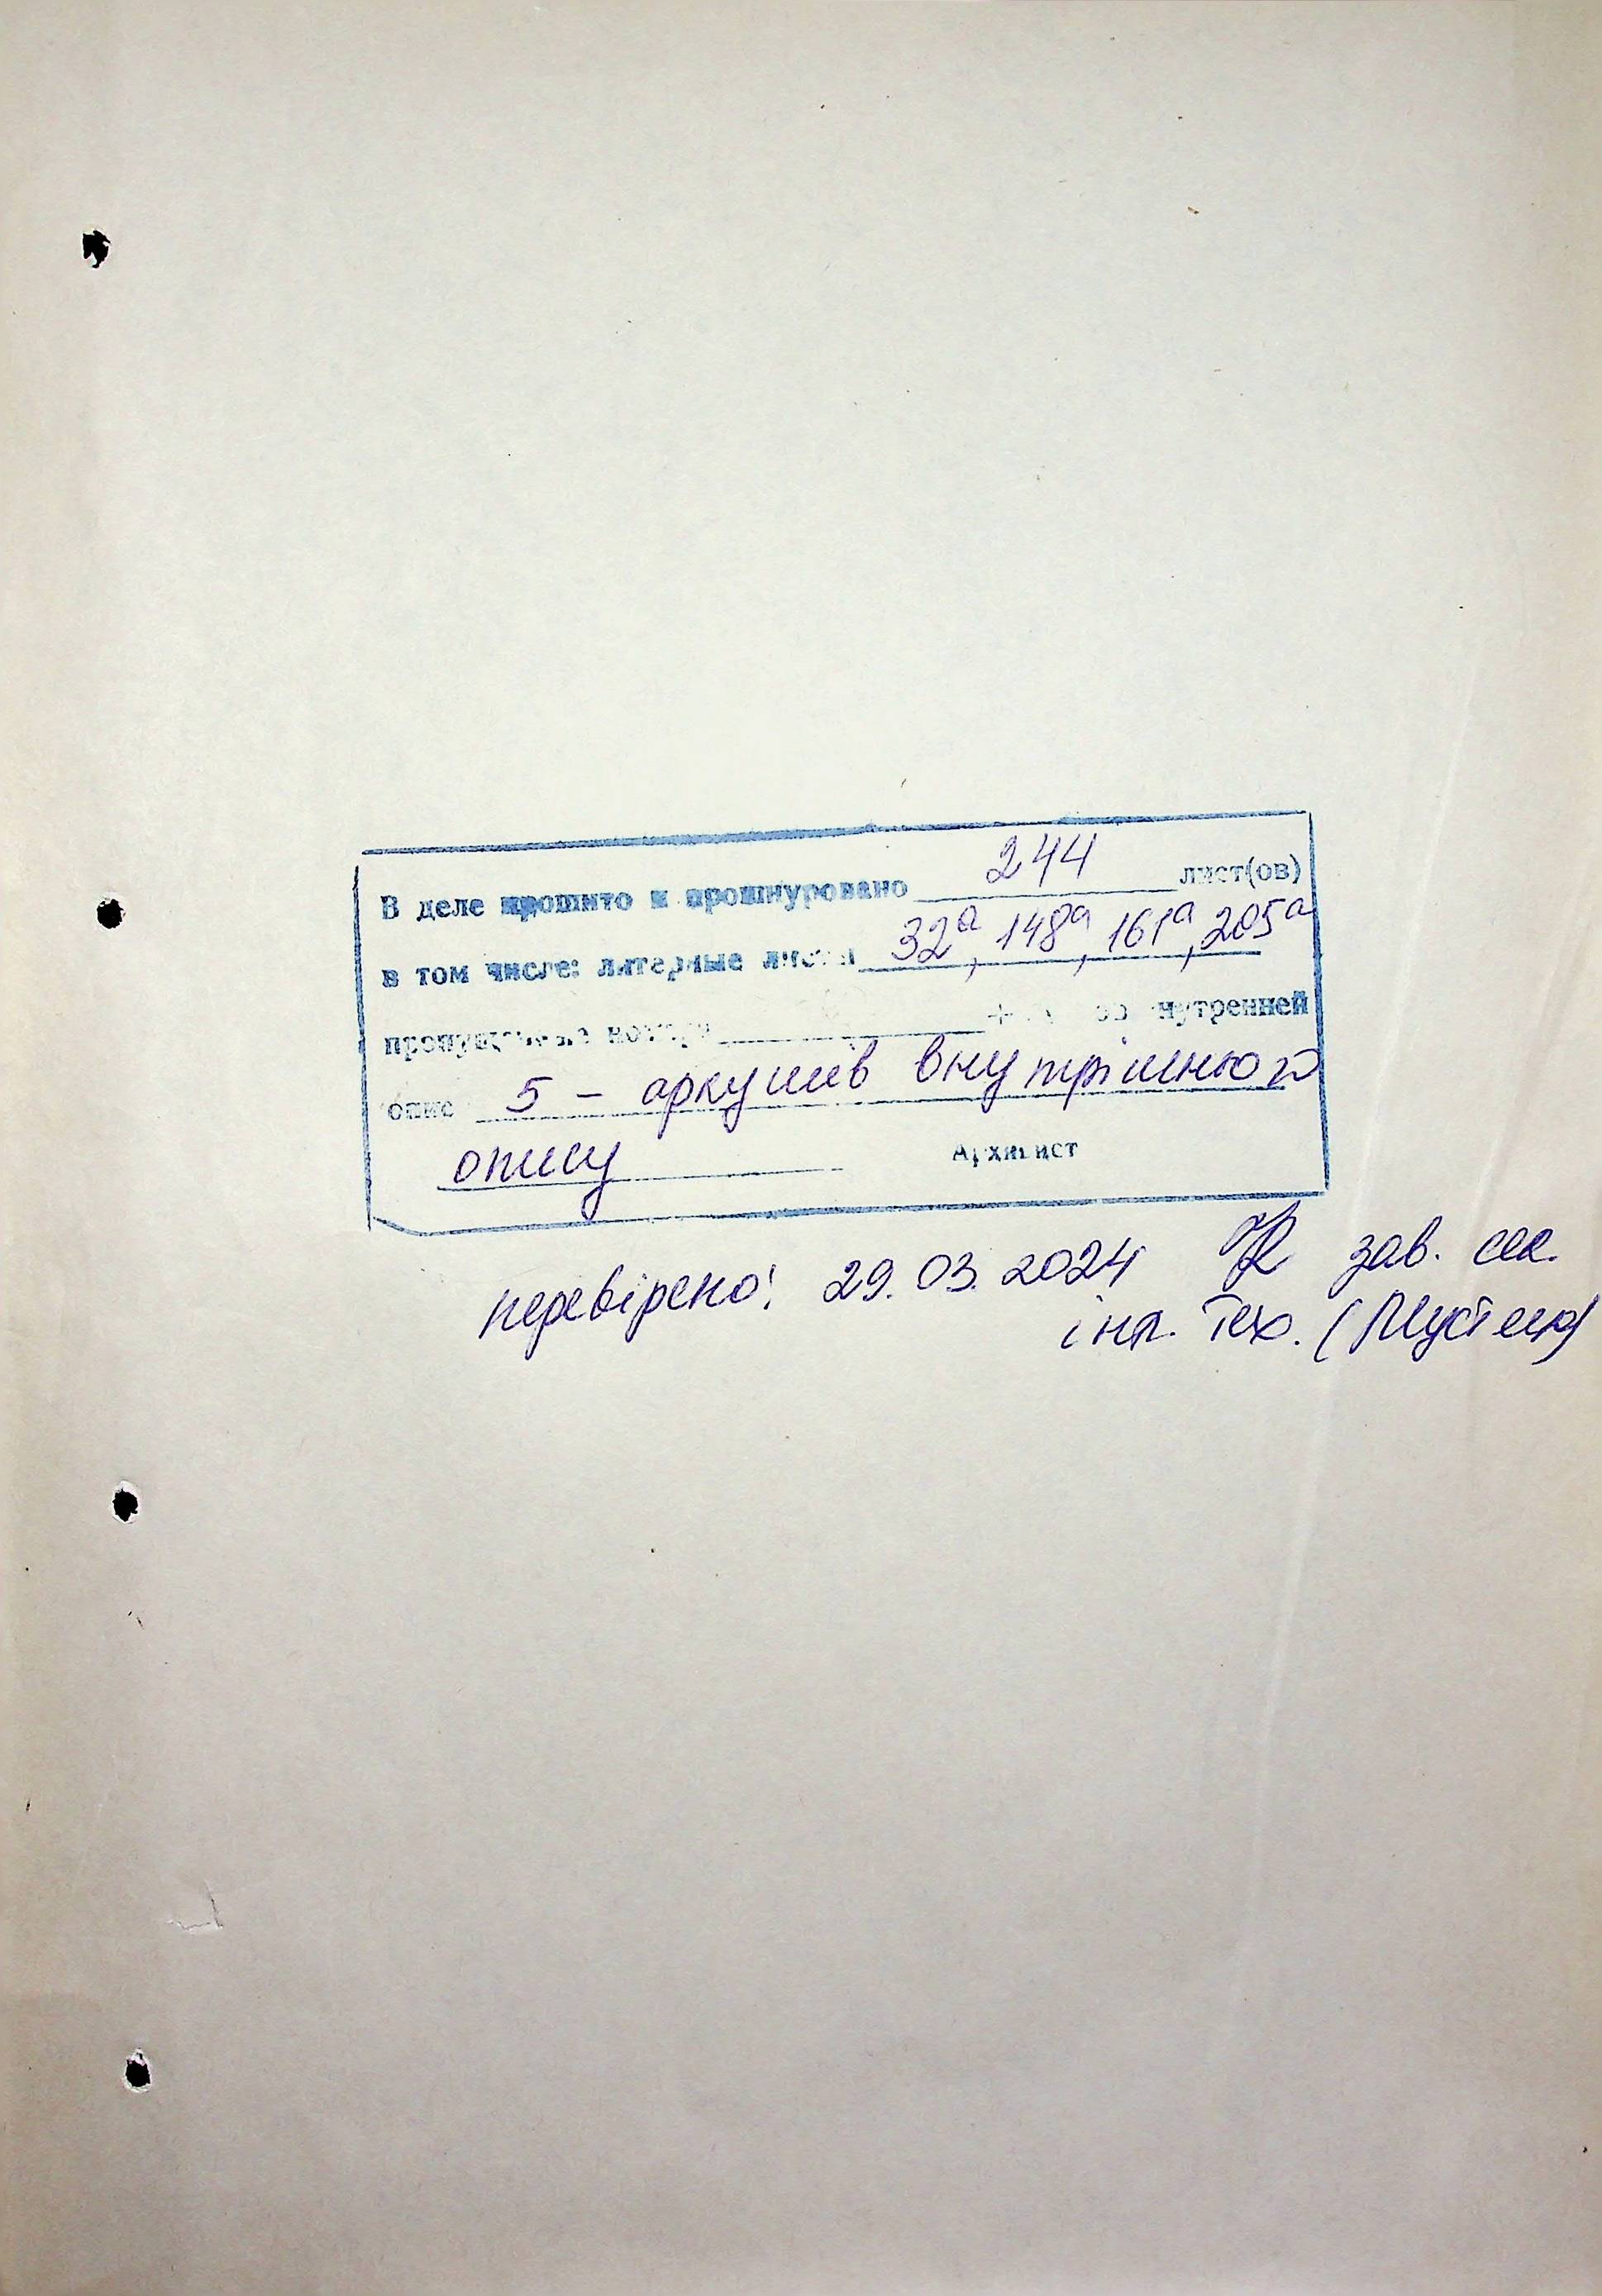 В деле прошито и прошнуровано 244 лист(ов)
в том числе: литерные листы 32а, 148а, 161а, 205а
пропущенные номера + внутренней
опис 5 – аркушів внутрішнього
опису Архивист
перевірено: 29.03.2024 зав. сек.
інв. тех.